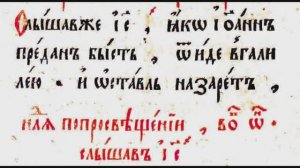 Слы́шавже і҆с҃ , ꙗ҆́кѡ і҆ѡа́ннъ
пре́данъ бы́сть , ѿи́де вгали
ле́ю . и҆ ѡ҆ста́вль назаре́тъ ,
нлѧ попросвѣще́нїи , во ѿ
слы́шавъ і҆с҃